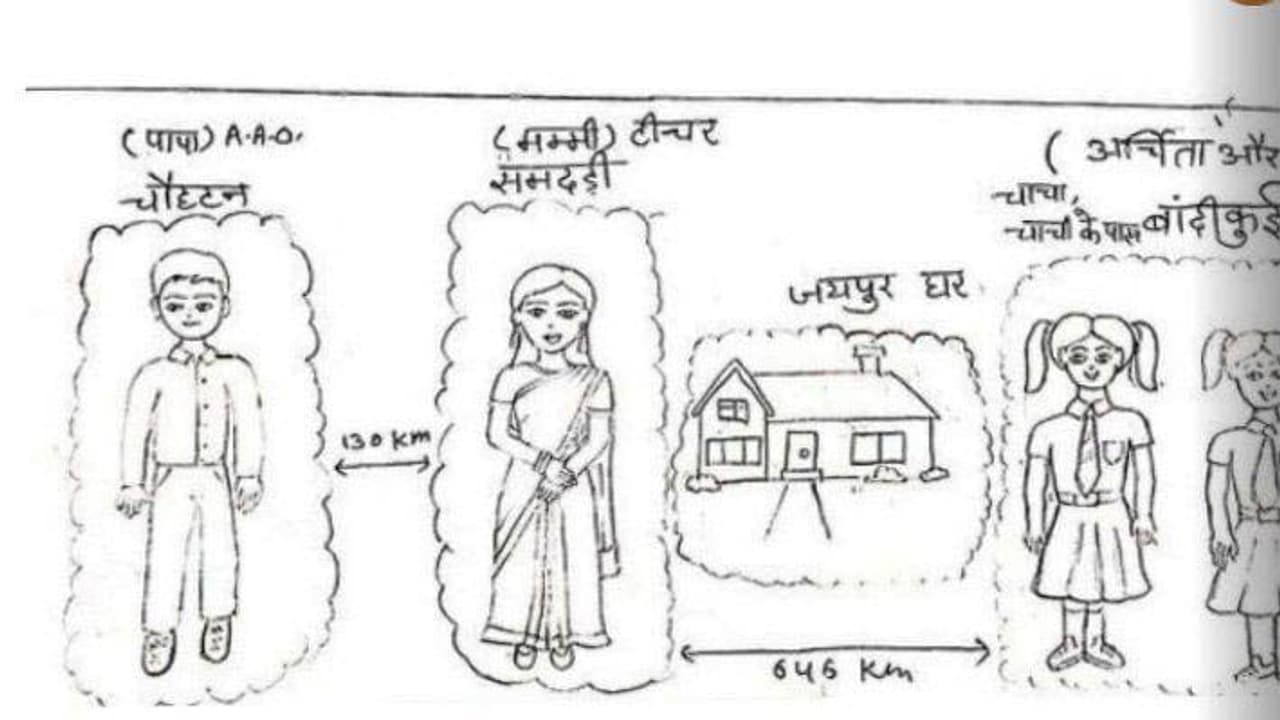 (पापा) A.A.O.
चौहटन
(मम्मी) टीचर
समदड़ी
( अर्चिता और
चाचा,
चाची के पास बांदीकुई
जयपुर घर
130 Km
646 Km